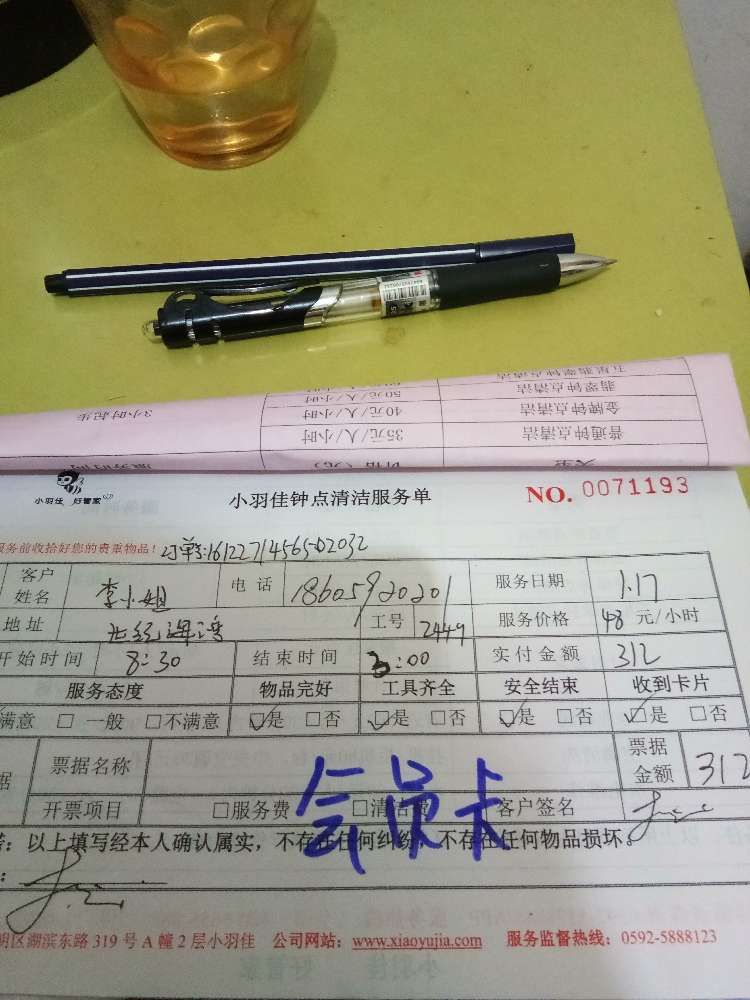 五星翡翠钟点清洁
翡翠钟点清洁 50元/人/小时
金牌钟点清洁 40元/人/小时 3小时起步
普通钟点清洁 35元/人/小时
小羽佳 好管家 小羽佳钟点清洁服务单 NO. 0071193
服务前收拾好您的贵重物品! 订单:1612271456502032
客户姓名 李小姐 电话 18605920201 服务日期 1.17
地址 工号 2449 服务价格 48 元/小时
开始时间 8:30 结束时间 3:00 实付金额 312
服务态度 物品完好 工具齐全 安全结束 收到卡片
满意 □ 一般 □不满意 ☑是 □否 ☑是 □否 ☑是 □否 ☑是 □否
据 票据名称 票据金额 312
开票项目 □服务费 □清洁费 客户签名
会员卡
: 以上填写经本人确认属实,不存在任何纠纷,不存在任何物品损坏。
明区湖滨东路 319 号 A 幢 2 层小羽佳 公司网站: www.xiaoyujia.com 服务监督热线: 0592-5888123